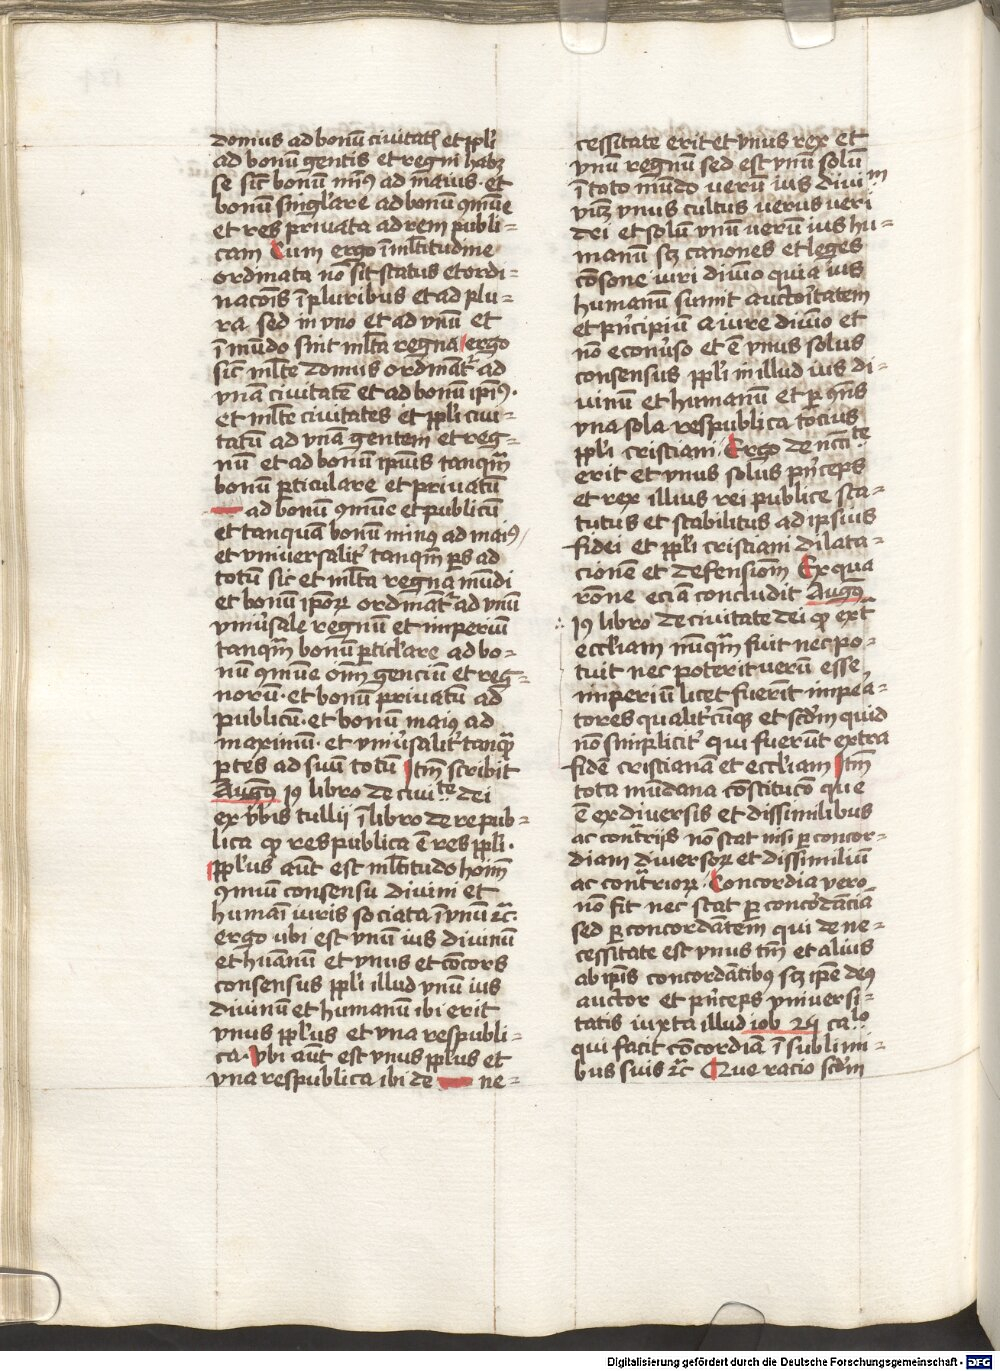 domus ad bonū civitatꝭ et ppl̕i
ad bonū gentis et regni habꝫ
se sic̄ bonū mīꝰ ad maius · et
bonū singl̕are ad bonū ꝯmūe
et res privata ad rem publi-
cam Cum ergo ī ml̕titudine
ordinata nō sit status et ordi-
nacōis ī pluribus et ad plu-
ra sed in vno et ad vnū et
ī mūdo sint ml̕ta regna / ergo
sic̄ ml̕te domus ordinātr̕ ad
vnā civitatē et ad bonū ip̄iꝰ ·
et ml̕te civitates et ppl̕i civi-
tatū ad vnā gentem et reg-
nū et ad bonū ip̄ius tanqm̄
bonū ꝑticulare et privatū
ad bonū ꝯmūe et publicū
et tanquā bonū minꝰ ad maiꝰ /
et vniversalit̕ tanqm̄ ꝑs ad
totū sic et ml̕ta regna mūdi
et bonū ip̄oꝝ ordinātr̕ ad vnū
vniu̕sale regnū et imperiū
tanqm̄ bonū ꝑticl̕are ad bo-
nū ꝯmūe om̄ genciū et reg-
norū · et bonū privatū ad
publicū · et bonū maiꝰ ad
maximū · et vniu̕salit̕ tanq̄
ꝑtes ad suū totū Itm̄ scribit
Augꝰ 19 libro de civite dei
ex v̕bis tullij ī libro de re pub-
lica ꝙ respublica ē res ppl̕i ·
ppl̕us aūt est ml̕titudo hoīm
ꝯmūi consensu divini et
humāi iuris sociata ī vnū ⁊c̄ ·
ergo vbi est vnū ius divinū
et huānū et vnus et cōcors
consensus ppl̕i illud vnū ius
divinū et humanū ibi erit
vnus ppl̕us et vna respubli-
ca · Vbi aūt est vnus ppl̕us et
vna respublica ibi de ne-
cessitate erit et vnus rex et
vnū regnū sed est vnū solū
ī toto mūdo verū ius divinū
vꝫ vnus cultus verus veri
dei et solū vnū verū ius hu-
manū sꝫ canones et leges
cōsone iuri divīo quia ius
humanū sumit auctoritatem
et pn̕cipiū a iure divīo et
nō econu̕so et ē vnus solus
consensus ppl̕i in illud ius di-
vinū et humanū et ꝑ ꝯn̄s
vna sola respublica tocius
ppl̕i cristiani · Ergo de nc̄cite
erit et vnus solus pn̕ceps
et rex illius rei publice sta-
tutus et stabilitus ad ip̄sius
fidei et ppl̕i cristiani dilata-
cionē et defensionm̄ Ex qua
rōne eciā concludit Augꝰ
19 libro de civitate dei ꝙ ext̕
eccl̕iam nūqm̄ fuit nec po-
tuit nec poterit verū esse
imperiū licet fuerīt impea-
tores qualit̕cūqꝫ et scd̄m quid
nō simplicit̕ qui fuerūt extra
fidē cristianā et eccl̕iam Itm̄
tota mūdana cōstitucō que
ē ex diversis et dissimilibus
ac contrarijs nō stat nisi ꝑ concor-
diam diversoꝝ et dissimiliū
ac contrarioꝝ · Concordia vero
nō fit nec stat ꝑ concordāciā
sed ꝑ concordātem qui de ne-
cessitate est vnus tm̄ et alius
ab ip̄is concordātibꝰ sꝫ ip̄e deꝰ
auctor et pn̕ceps vniversi-
tatis iuxta illud iob 24 calo
qui facit cōcordiā ī sublimi-
bus suis ⁊c̄ Que racio scd̄m
Digitalisierung gefördert durch die Deutsche Forschungsgemeinschaft - DFG